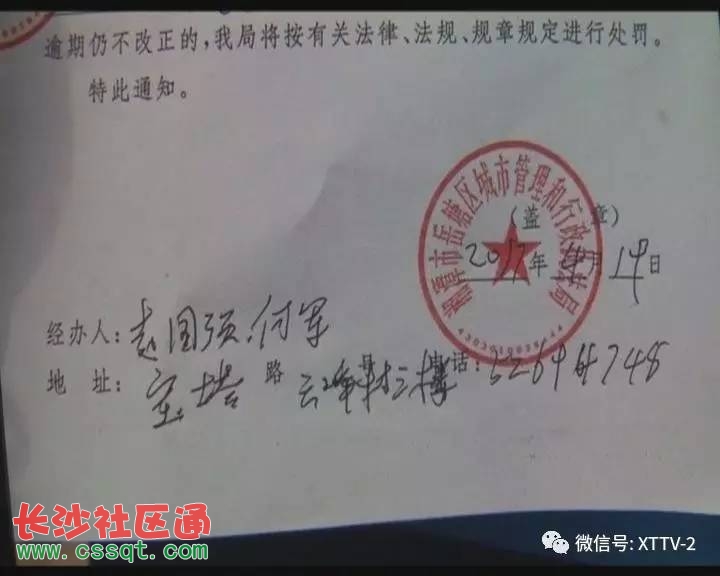 逾期仍不改正的，我局将按有关法律、法规、规章规定进行处罚。
特此通知。
湘潭市岳塘区城市管理和行政执法局
（盖 章）
2017年4月14日
经办人：赵国强、付军
地 址：宝塔路 号 电话：52646748
长沙社区通
www.cssqt.com
微信号: XTTV-2